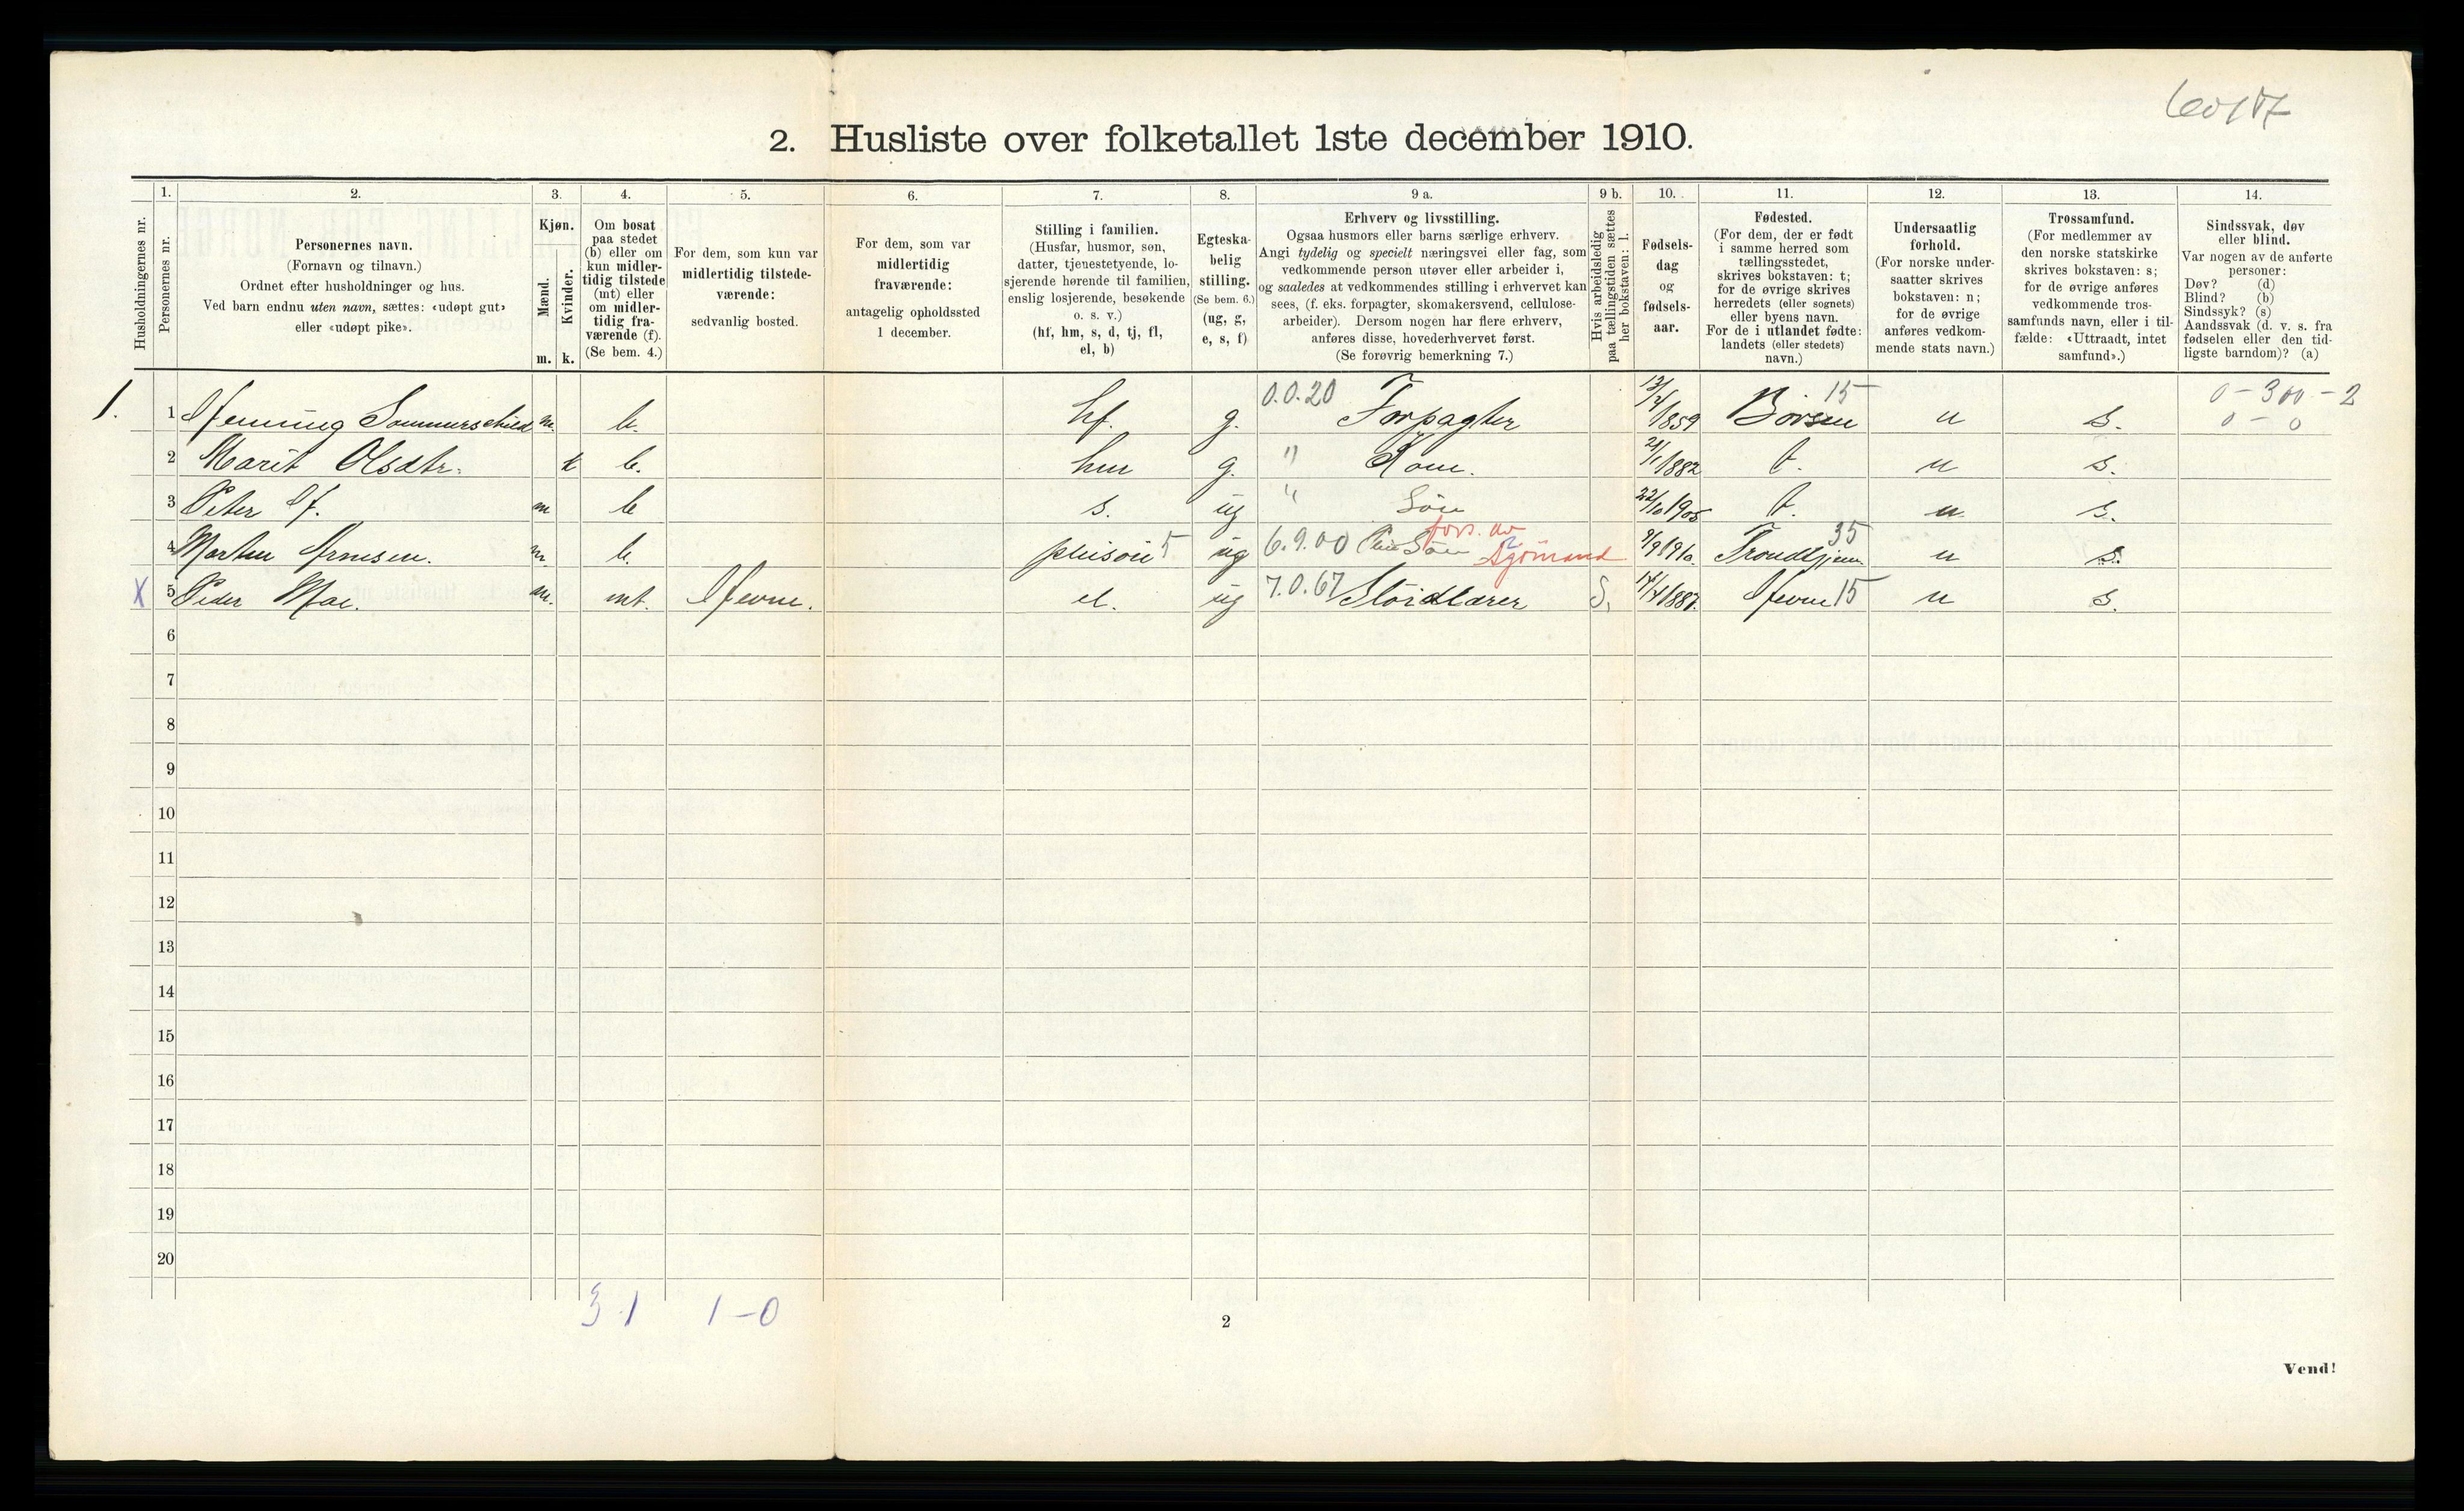 2. Husliste over folketallet 1ste december 1910.
1. 2. 3. 4. 5. 6. 7. 8. 9 a. 9 b. 10. 11. 12. 13. 14.
Husholdningernes nr.
Personernes nr.
Personernes navn.
(Fornavn og tilnavn.)
Ordnet efter husholdninger og hus.
Ved barn endnu uten navn, sættes: «udøpt gut»
eller «udøpt pike».
Kjøn.
Mænd.
Kvinder.
m. k.
Om bosat
paa stedet
(b) eller om
kun midler-
tidig tilstede
(mt) eller
om midler-
tidig fra-
værende (f).
(Se bem. 4.)
For dem, som kun var
midlertidig tilstede-
værende:
sedvanlig bosted.
For dem, som var
midlertidig
fraværende:
antagelig opholdssted
1 december.
Stilling i familien.
(Husfar, husmor, søn,
datter, tjenestetyende, lo-
sjerende hørende til familien,
enslig losjerende, besøkende
o. s. v.)
(hf, hm, s, d, tj, fl,
el, b)
Egteska-
belig
stilling.
(Se bem. 6.)
(ug, g,
e, s, f)
Erhverv og livsstilling.
Ogsaa husmors eller barns særlige erhverv.
Angi tydelig og specielt næringsvei eller fag, som
vedkommende person utøver eller arbeider i,
og saaledes at vedkommendes stilling i erhvervet kan
sees, (f. eks. forpagter, skomakersvend, cellulose-
arbeider). Dersom nogen har flere erhverv,
anføres disse, hovederhvervet først.
(Se forøvrig bemerkning 7.)
Hvis arbeidsledig
paa tællingstiden sættes
her bokstaven: l.
Fødsels-
dag
og
fødsels-
aar.
Fødested.
(For dem, der er født
i samme herred som
tællingsstedet,
skrives bokstaven: t;
for de øvrige skrives
herredets (eller sognets)
eller byens navn.
For de i utlandet fødte:
landets (eller stedets)
navn.)
Undersaatlig
forhold.
(For norske under-
saatter skrives
bokstaven: n;
for de øvrige
anføres vedkom-
mende stats navn.)
Trossamfund.
(For medlemmer av
den norske statskirke
skrives bokstaven: s;
for de øvrige anføres
vedkommende tros-
samfunds navn, eller i til-
fælde: «Uttraadt, intet
samfund».)
Sindssvak, døv
eller blind.
Var nogen av de anførte
personer:
Døv? (d)
Blind? (b)
Sindssyk? (s)
Aandssvak (d. v. s. fra
fødselen eller den tid-
ligste barndom)? (a)
1. 1 Henning Sommerschild m. b. hf. g. 0.0.20 Forpagter 1859 Börsen 15 n s. 0 - 300 - 2
0 - 0
2 Marit Olsdtr. k b. hm g. " Kone. 21/1 1882 t. n s.
3 Peter H. m b s. ug " Sön 22/10 1905 t. n s.
4 Morten Arntsen. m. b. pleisön 5 ug 6.9.00 Sön fors. av Sjömand 9/9 1910 Trondhjem 35 n s.
X 5 Peder Moe. m. mt. Hevne. el. ug 7.0.67 Slöidlærer S. 1887. Hevne 15 n s.
6
7
8
9
10
11
12
13
14
15
16
17
18
19
20
3 1 1 - 0
2
Vend!